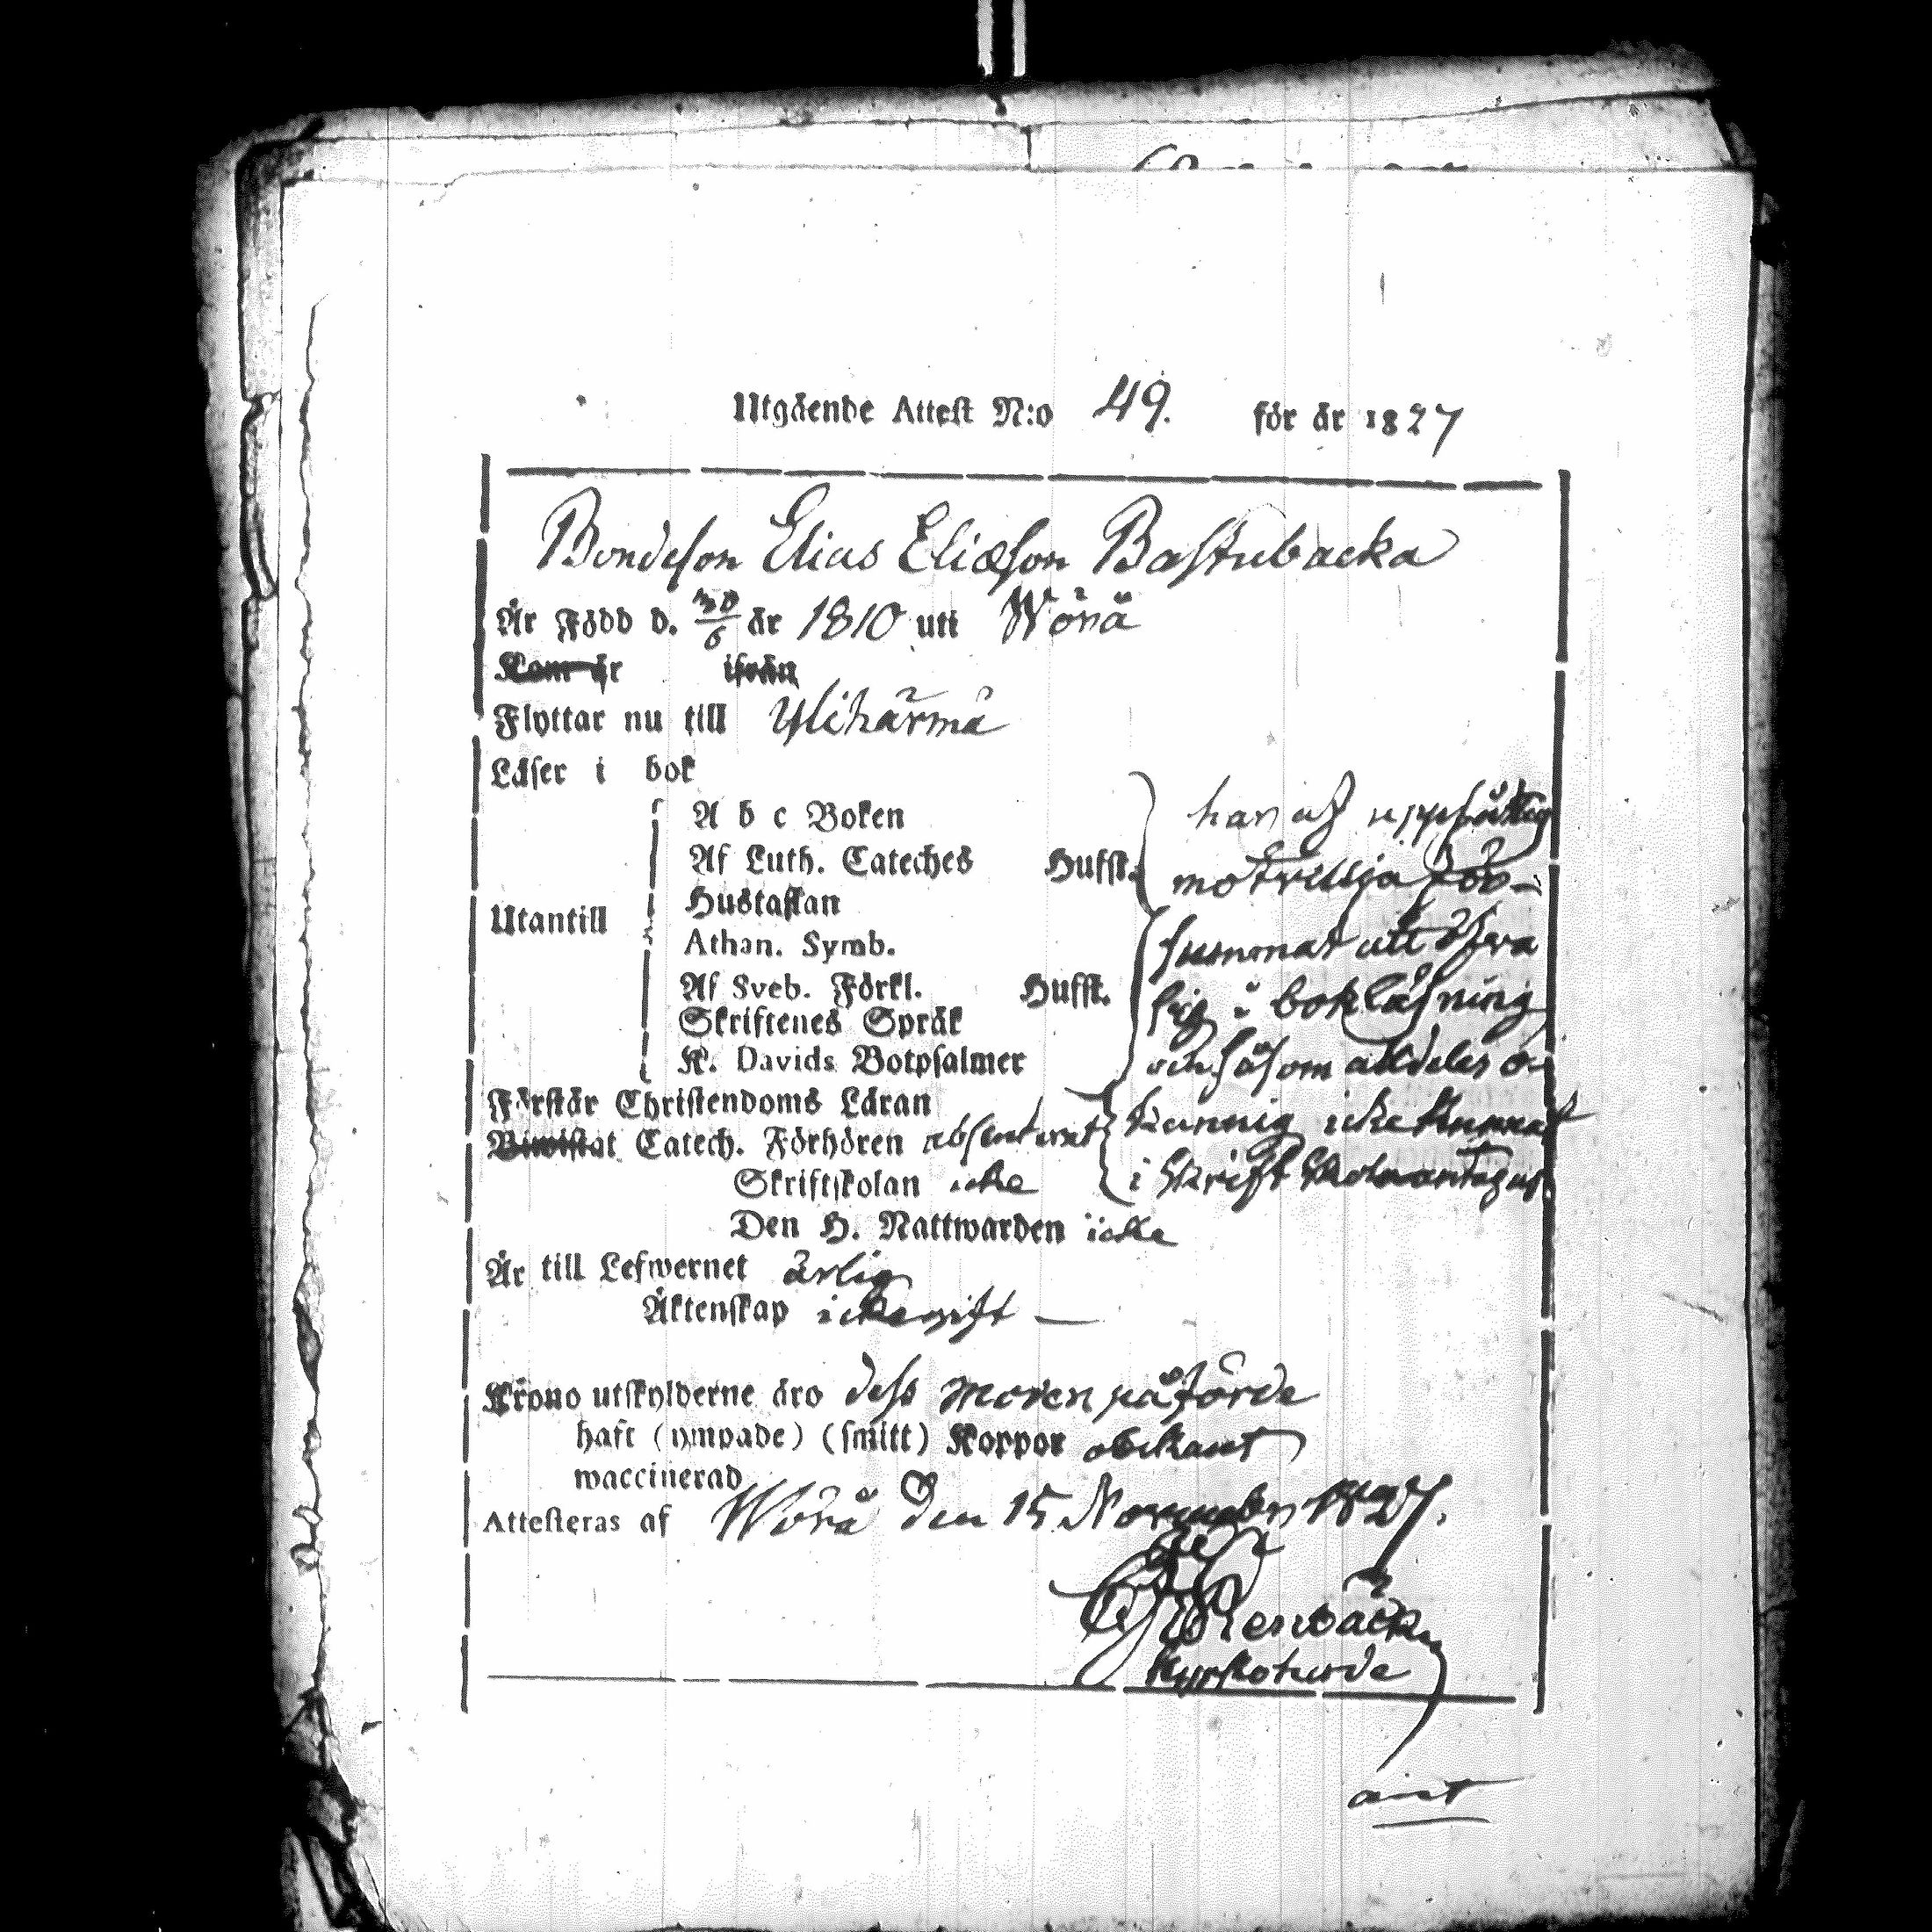 Utgående Attest N:o 49. för år 1827
Bondeson Elias Eliæson Bastubacka
År Född d. 30/6 år 1810 uti Wörå
Kom år ifrån
Flyttar nu till Ylihärmä
Läser i bok
A b c Boken
Af Luth. Cateches Hufst.
Hustaflan
Utantill
Athan. Symb.
Af Sveb. Förkl. Hufst.
Skriftenes Språk
K. Davids Botpsalmer
har af uppsåtlig
motvilja för-
summat att öfva
sig i bokläsning
och såsom alldeles o-
kunnig icke kunnat
i Skriftskolan antagas
Förstår Christendoms Läran
Biwistat Catech. Förhören absenterat
Skriftskolan icke
Den H. Nattwarden icke
År till Lefwernet ärlig
Äktenskap icke gift —
Krono utskylderne äro dess moder påförde
haft (ympade) (smitt) Koppor obekant
waccinerad
Attesteras af Wörå den 15 November 1827.